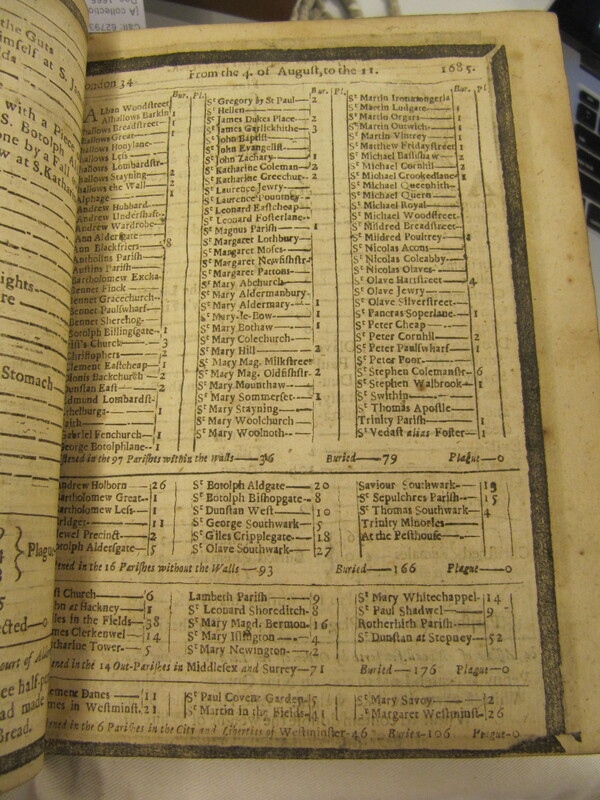 the Guts
himself at S. Ja
with a Piece
S. Botolph A
one by a Fall
w at S. Kathar
ights
re
Stomach
Plague
cted—0
ourt of Al
ee half-pe
ad made
Bread.
London 34 From the 4. of August, to the 11. 1685.
Bur. Pl.
Alban Woodſtreet
Alhallows Barkin 1
hallows Breadſtreet 1
hallows Great 1
hallows Honylane
hallows Leſs
hallows Lombardſtr
hallows Stayning 2
hallows the Wall 2
Alphage 1
Andrew Hubbard
Andrew Underſhaft
Andrew Wardrobe
Ann Alderſgate
Ann Blackfriers 8
Antholins Pariſh
Auſtins Pariſh
Bartholomew Excha
Bennet Finck
Bennet Gracechurch
Bennet Paulſwharf
Bennet Sherehog
Botolph Billingſgate 1
Chriſt's Church 3
Chriſtophers 2
Clement Eaſtcheap 1
Dionis Backchurch 2
Dunſtan Eaſt 2
Edmund Lombardſt
Ethelburga 1
Faith
Gabriel Fenchurch 1
George Botolphlane 1
Bur. Pl.
Sᵗ Gregory by St Paul 2
Sᵗ Hellen
Sᵗ James Dukes Place 2
Sᵗ James Garlickhithe 3
Sᵗ John Baptiſt
Sᵗ John Evangeliſt
Sᵗ John Zachary 1
Sᵗ Katharine Coleman 2
Sᵗ Katharine Creechur 2
Sᵗ Laurence Jewry
Sᵗ Laurence Pountney
Sᵗ Leonard Eaſtcheap
Sᵗ Leonard Foſterlane
Sᵗ Magnus Pariſh 1
Sᵗ Margaret Lothbury
Sᵗ Margaret Moſes
Sᵗ Margaret Newfiſhſtr
Sᵗ Margaret Pattons
Sᵗ Mary Abchurch
Sᵗ Mary Aldermanbury
Sᵗ Mary Aldermary 1
Sᵗ Mary-le-Bow 1
Sᵗ Mary Bothaw 1
Sᵗ Mary Colechurch
Sᵗ Mary Hill 2
Sᵗ Mary Mag. Milkſtreet
Sᵗ Mary Mag. Oldfiſhſtr 2
Sᵗ Mary Mounthaw
Sᵗ Mary Sommerſet 1
Sᵗ Mary Stayning
Sᵗ Mary Woolchurch
Sᵗ Mary Woolnoth
Bur. Pl
Sᵗ Martin Ironmongerla
Sᵗ Martin Ludgate 1
Sᵗ Martin Orgars 1
Sᵗ Martin Outwich
Sᵗ Martin Vintrey 1
Sᵗ Matthew Fridayſtreet 1
Sᵗ Michael Baſſiſhaw 2
Sᵗ Michael Cornhil 2
Sᵗ Michael Crookedlane 1
Sᵗ Michael Queenhith
Sᵗ Michael Quern
Sᵗ Michael Royal
Sᵗ Michael Woodſtreet
Sᵗ Mildred Breadſtreet
Sᵗ Mildred Poultrey
Sᵗ Nicolas Acons
Sᵗ Nicolas Coleabby
Sᵗ Nicolas Olaves
Sᵗ Olave Hartſtreet 4
Sᵗ Olave Jewry
Sᵗ Olave Silverſtreet
Sᵗ Pancras Soperlane 1
Sᵗ Peter Cheap
Sᵗ Peter Cornhil 2
Sᵗ Peter Paulſwharf 1
Sᵗ Peter Poor
Sᵗ Stephen Colemanſtr 6
Sᵗ Stephen Walbrook 1
Sᵗ Swithin
Sᵗ Thomas Apoſtle
Trinity Pariſh 1
Sᵗ Vedaſt alias Foſter 1
ſtened in the 97 Pariſhes within the Walls—36 Buried—79 Plague—0
Andrew Holborn 26
Bartholomew Great 1
Bartholomew Leſs 1
Bridget 11
Bridewel Precinct 2
Botolph Alderſgate 5
Sᵗ Botolph Aldgate 20
Sᵗ Botolph Biſhopgate 8
Sᵗ Dunſtan Weſt 10
Sᵗ George Southwark 5
Sᵗ Giles Cripplegate 18
Sᵗ Olave Southwark 27
Saviour Southwark 19
Sᵗ Sepulchres Pariſh 15
Sᵗ Thomas Southwark 4
Trinity Minories
At the Peſthouſe
ened in the 16 Pariſhes without the Walls—93 Buried—166 Plague—0
ſt Church 6
hn at Hackney 1
iles in the Fields 38
mes Clerkenwel 14
tharine Tower 5
Lambeth Pariſh 9
Sᵗ Leonard Shoreditch 8
Sᵗ Mary Magd. Bermon 16
Sᵗ Mary Iſlington 4
Sᵗ Mary Newington 2
Sᵗ Mary Whitechappel 14
Sᵗ Paul Shadwel 9
Rotherhith Pariſh
Sᵗ Dunſtan at Stepney 52
ened in the 14 Out-Pariſhes in Middleſex and Surrey—71 Buried—176 Plague—0
ement Danes 11
mes in Weſtminſt. 21
Sᵗ Paul Covent Garden 5
Sᵗ Martin in the Fields 41
Sᵗ Mary Savoy 2
Sᵗ Margaret Weſtminſt 26
ened in the 6 Pariſhes in the City and Liberties of Weſtminſter—46 Buried—106 Plague—0